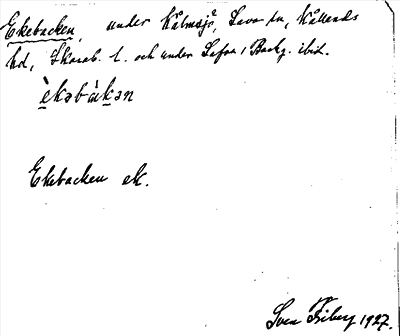 Ekebacken, under Hålmsjö, Lava sn, Kållands
hd, Skarab. l. och under Lafva, Backg. ibid.
èkəbàkən
Ekebacken ek.
Sven Friberg 1927.